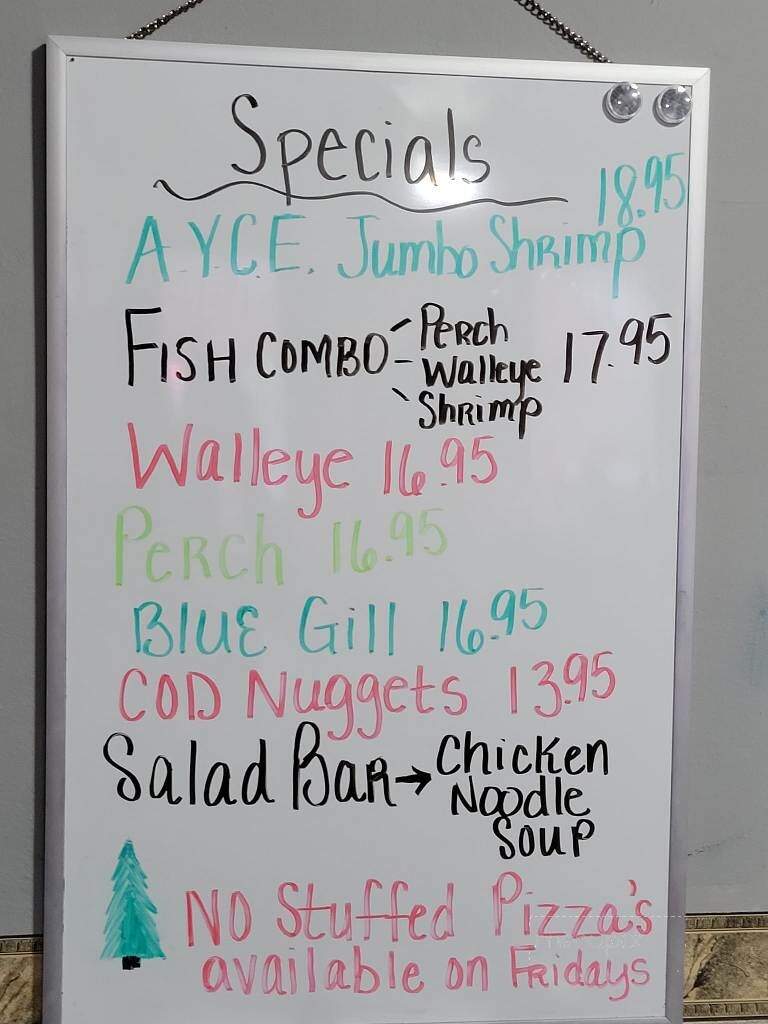 Specials
18.95
A.Y.C.E. Jumbo Shrimp
FISH COMBO - Perch 17.95
- Walleye
- Shrimp
Walleye 16.95
Perch 16.95
BLUE Gill 16.95
COD Nuggets 13.95
Salad Bar → Chicken
Noodle
Soup
NO Stuffed Pizza's
available on Fridays